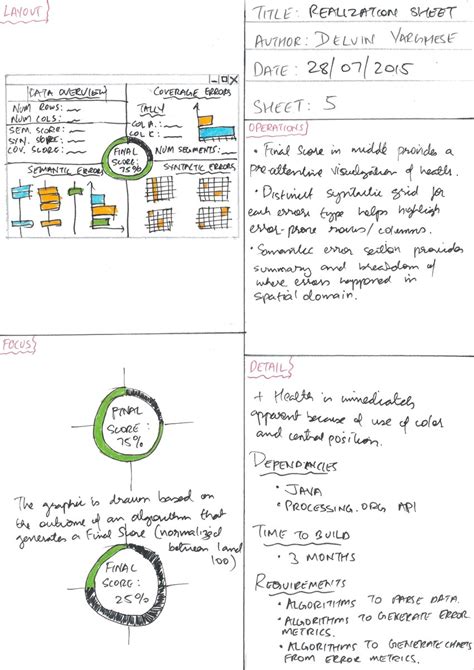 LAYOUT
TITLE: REALIZATION SHEET
AUTHOR: DELVIN VARGHESE
DATE: 28/07/2015
SHEET: 5
DATA OVERVIEW
NUM ROWS:
NUM COLS:
SEM. SCORE:
SYN. SCORE:
COV. SCORE:
COVERAGE ERRORS
TALLY
COL A:
COL E:
NUM SEGMENTS:
FINAL
SCORE:
75%
SEMANTIC ERRORS
SYNTACTIC ERRORS
OPERATIONS
• Final Score in middle provides a
pre-attentive visualization of health.
• Distinct syntactic grid for
each error type helps highlight
error-prone rows/columns.
• Semantic error section provides
summary and breakdown of
where errors happened in
spatial domain.
FOCUS
FINAL
SCORE:
75%
The graphic is drawn based on
the outcome of an algorithm that
generates a Final Score (normalized
between 1 and
100)
FINAL
SCORE:
25%
DETAIL
+ Health is immediately
apparent because of use of color
and central position.
DEPENDANCIES
• JAVA
• PROCESSING.ORG API
TIME TO BUILD
• 3 MONTHS
REQUIREMENTS
• ALGORITHMS TO PARSE DATA.
• ALGORITHMS TO GENERATE ERROR
METRICS.
• ALGORITHMS TO GENERATE CHARTS
FROM ERROR METRICS.